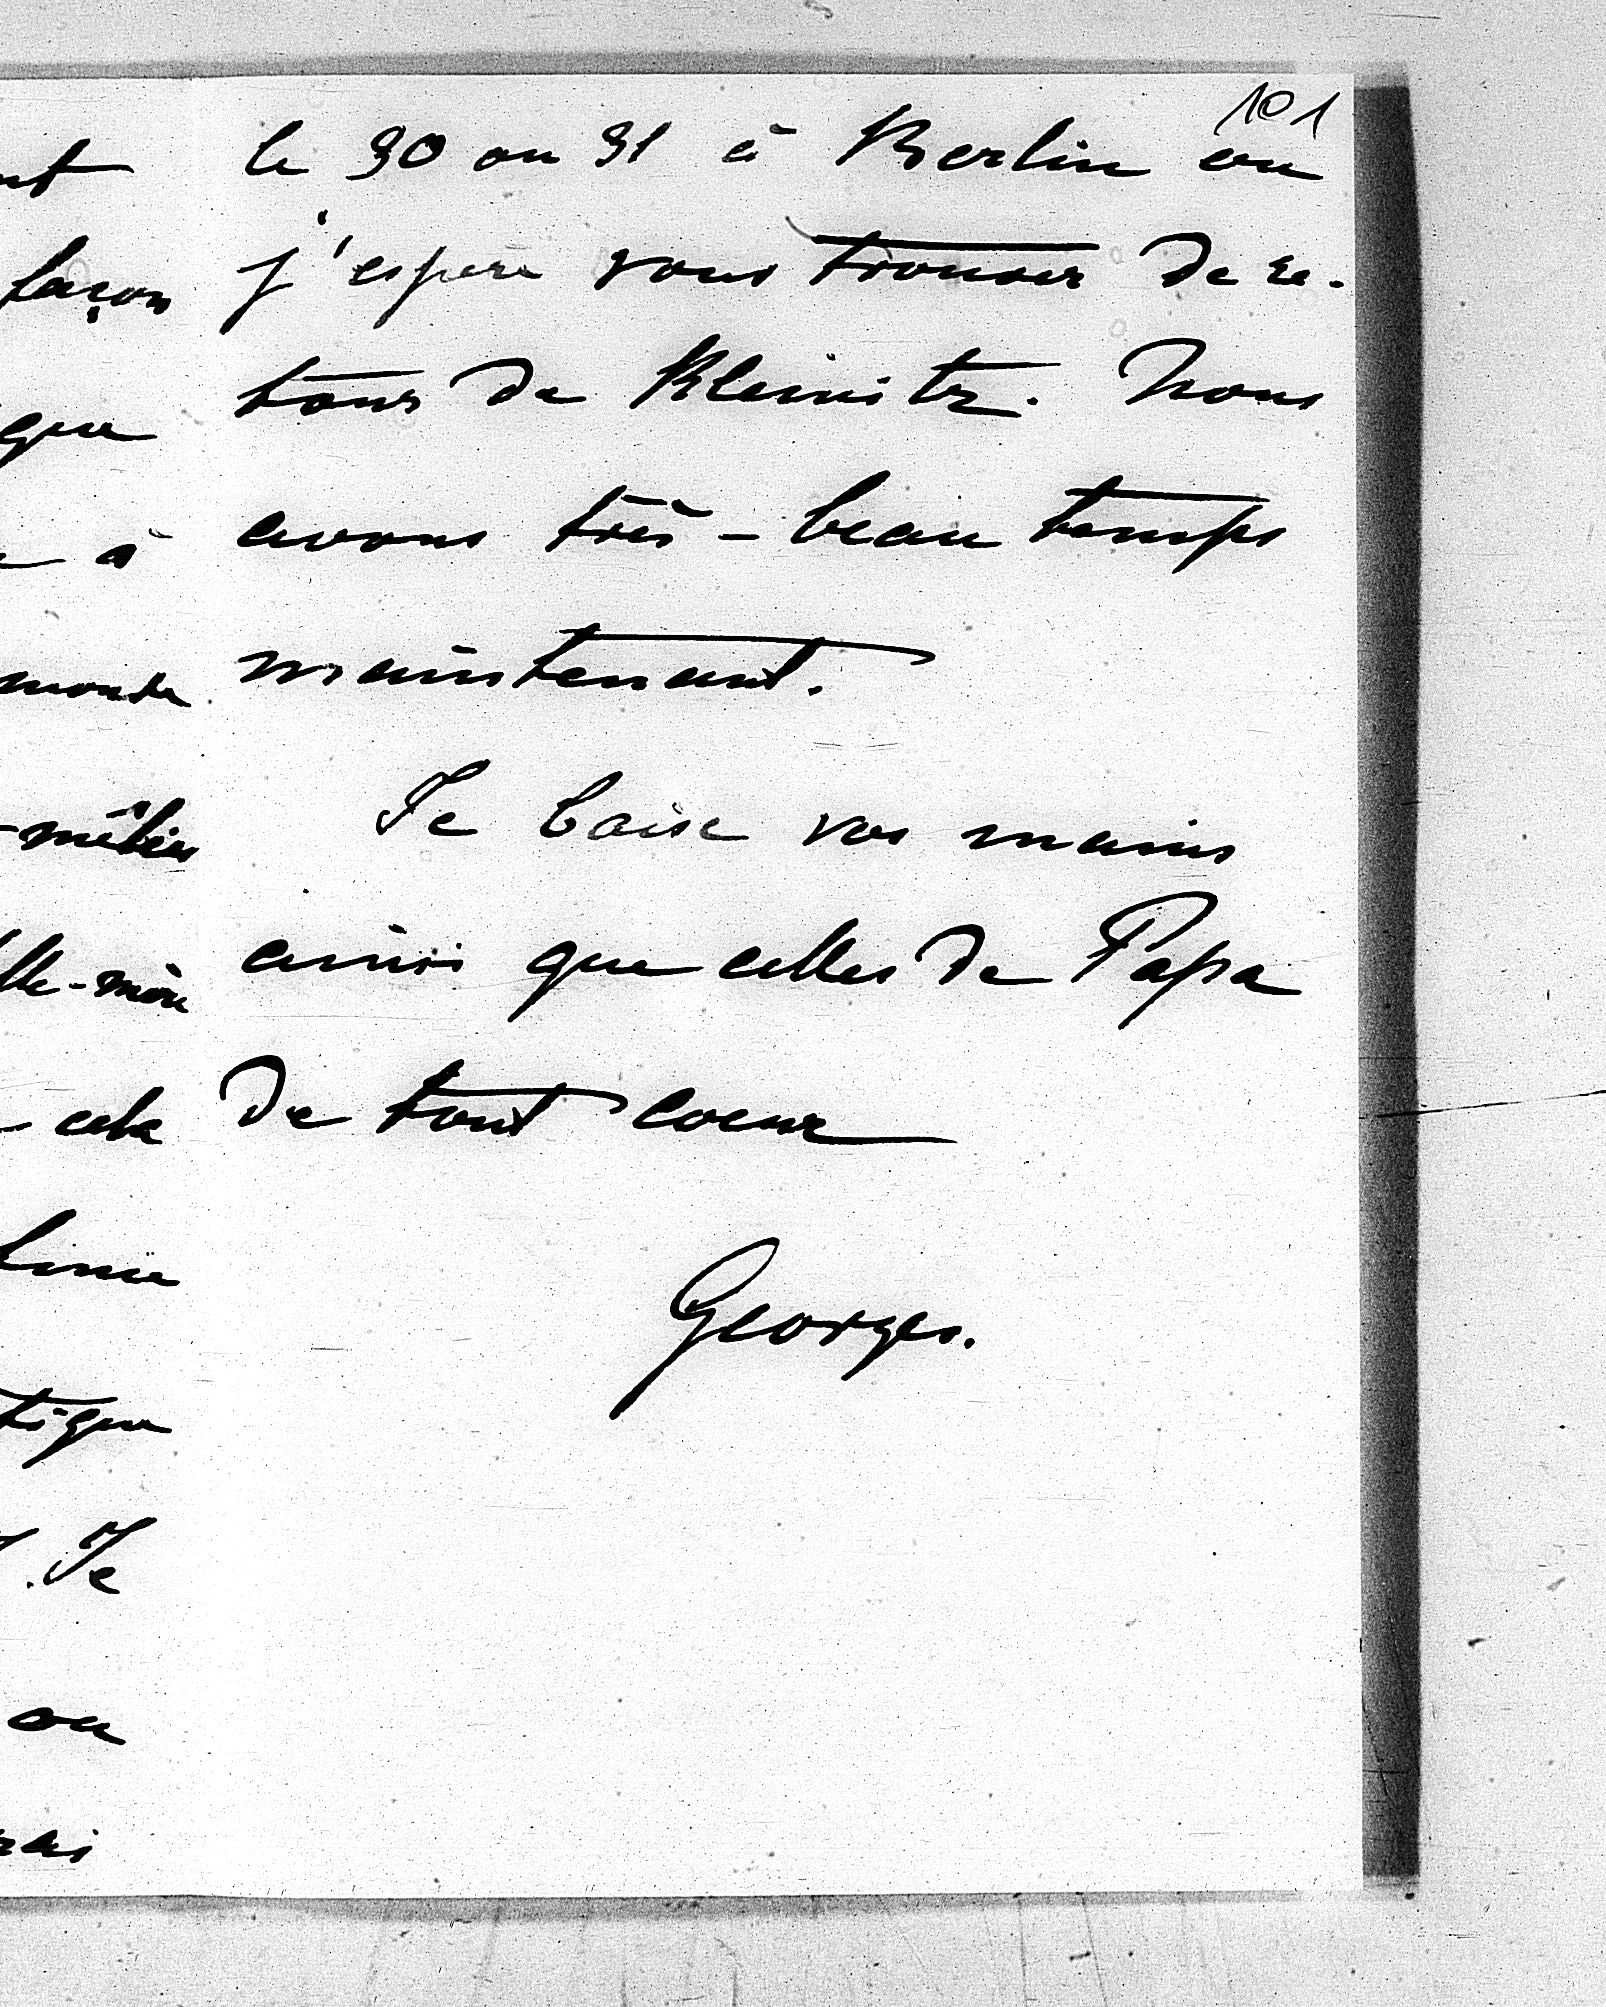 101
le 30 ou 31 à Berlin ou
j'espère vous trouver de re-
tour de Kleinitz. Nous
avons très-beau temps
maintenant.
Je baise vos mains
ainsi que celles de Papa
de tout coeur
Georges.
façon
que
à
monde
cela
. Je
ou